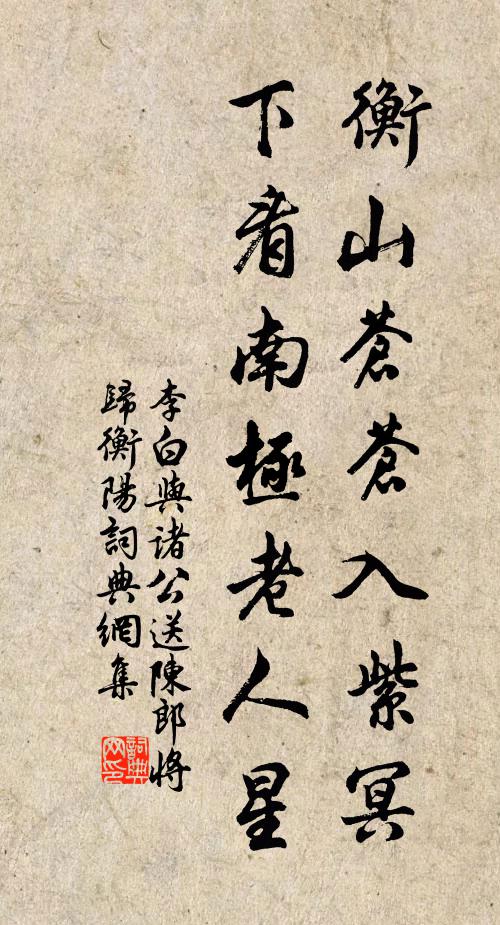 衡山蒼蒼入紫冥
下看南極老人星
李白與諸公送陳郎將
歸衡陽詞典網集
詞典
网印